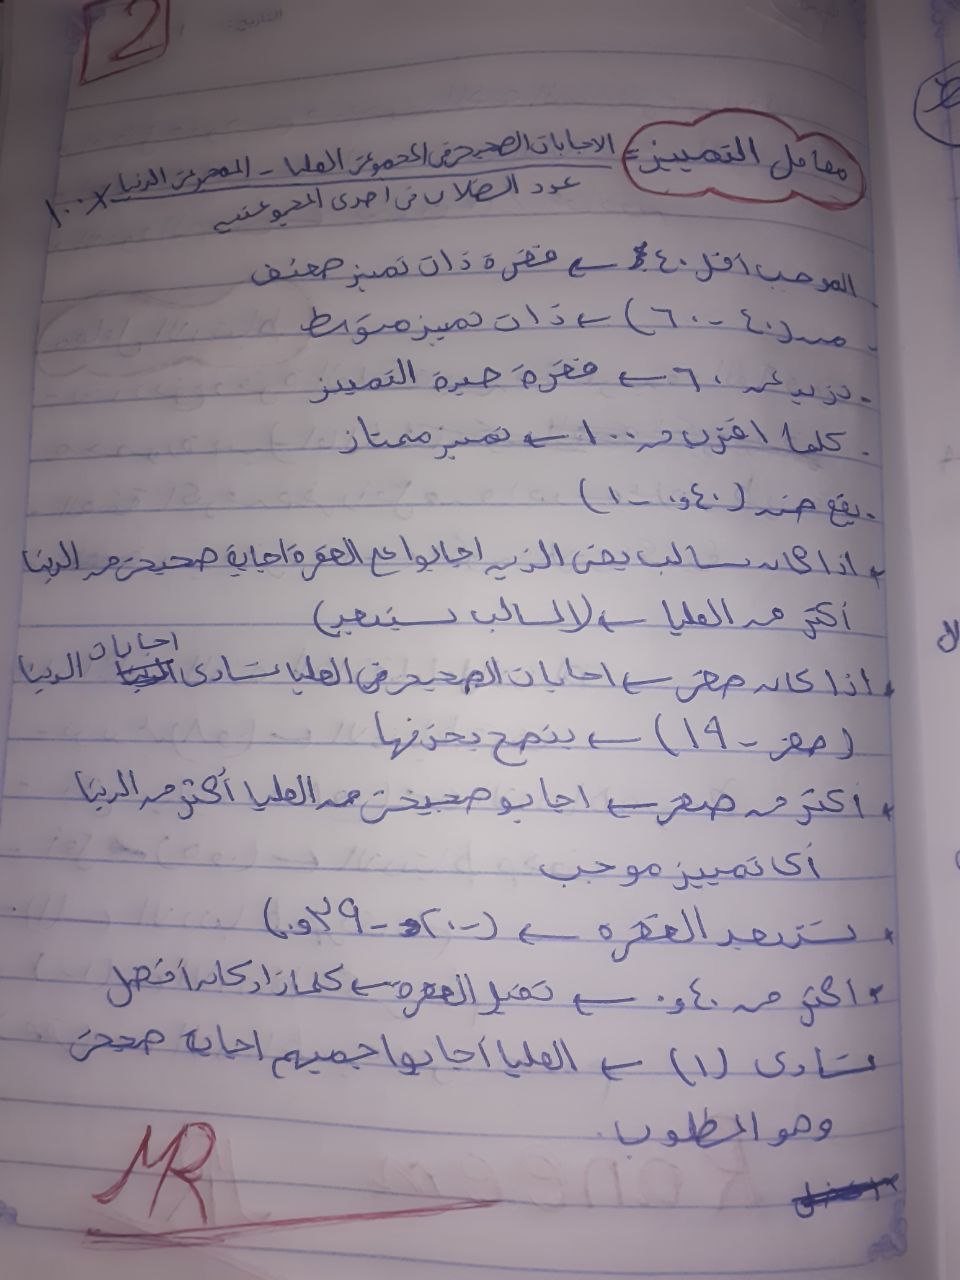 2
معامل التمييز = الاجابات الصحيحة في المجموعة العليا - المجموعة الدنيا × ١٠٠
عدد الطلاب في احدى المجموعتين
الموجب أقل ٤٠ ← فقرة ذات تميز ضعيف
. من (٤٠ - ٦٠) ← ذات تميز متوسط
- تزيد عن ٦٠ ← فقرة جيدة التمييز
. كلما اقترب من ١٠٠ ← تميز ممتاز
- يقع ضمن (٤٠و٠ - ١)
* اذا كان سالب يعني الذين اجابوا على الفقرة اجابة صحيحة من الدنيا
أكثر من العليا ← (السالب يستبعد)
* اذا كان صفر ← اجابات الصحيحة في العليا تساوى اجابات الدنيا
(صفر - ١٩) ← ينصح بحذفها
* أكثر من صفر ← اجابو صحيحة من العليا أكثر من الدنيا
أى تمييز موجب
* تستبعد الفقره ← (-٢٠و - ٣٩و٠)
* اكثر من ٤٠و٠ ← تقبل الفقرة ← كلما زاد كان أفضل
تساوى (١) ← العليا أجابوا جميهم اجابة صحيحة
وهو المطلوب.
MR